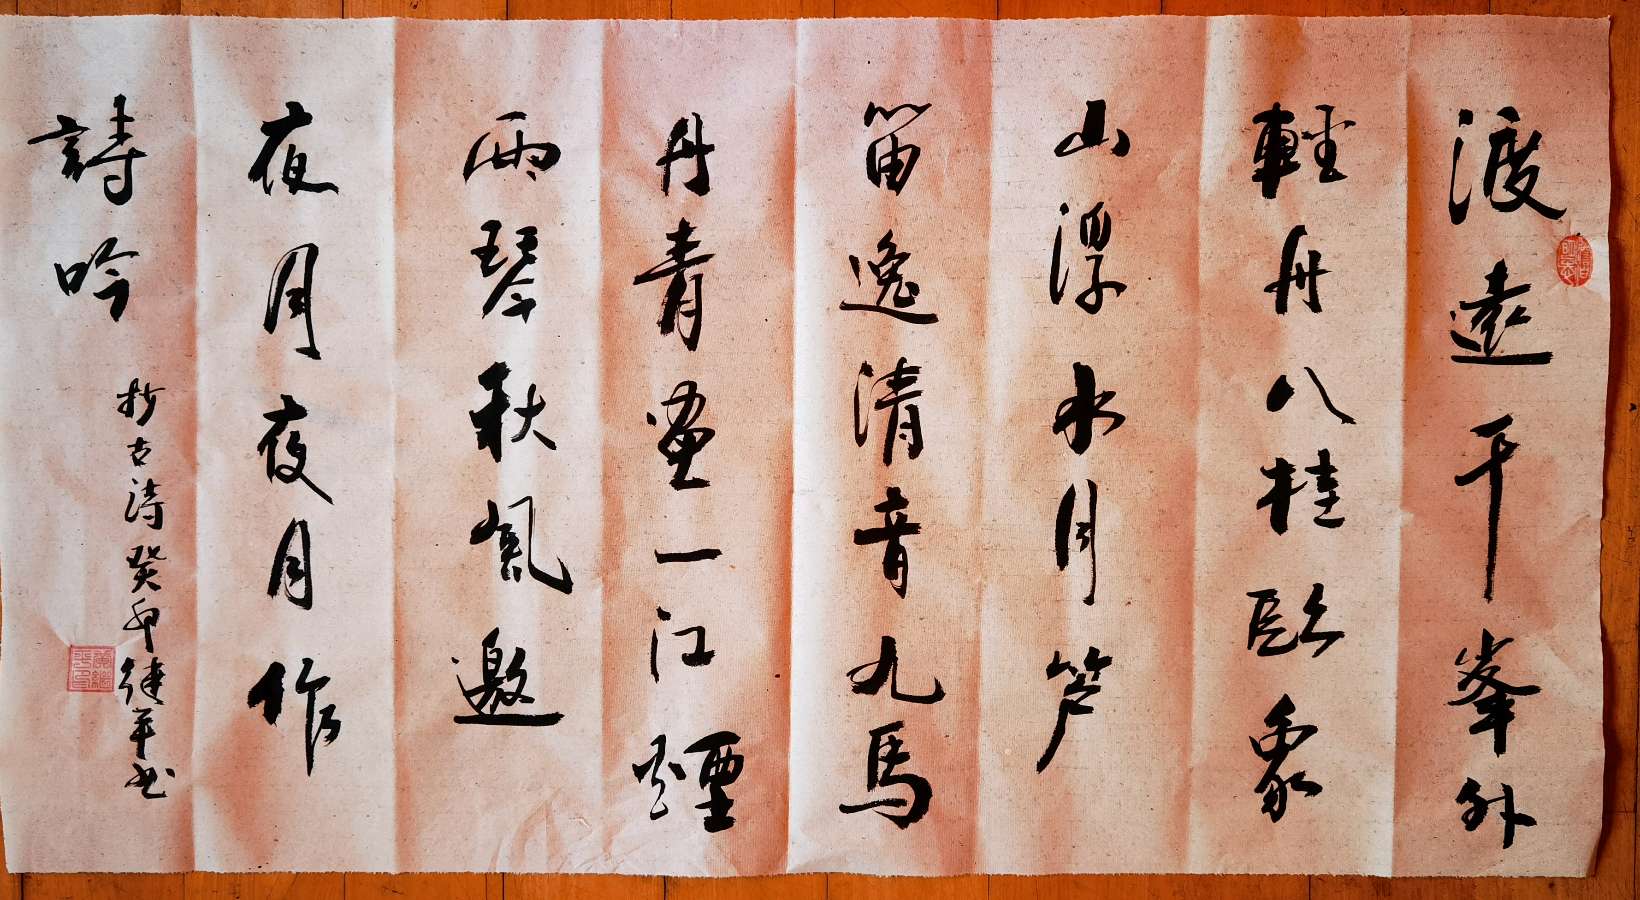 渡遠千峯外
輕舟八桂臨象
山浮水月芦
笛逸清音九馬
丹青畫一江煙
雨琴秋風邀
夜月夜月作
詩吟
抄古诗癸卯继平书